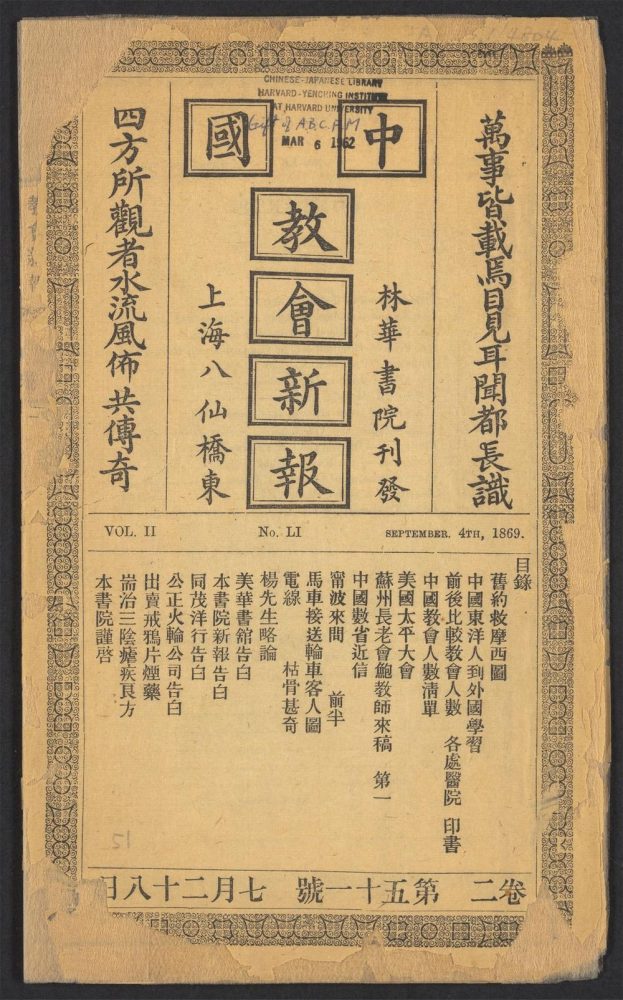 CHINESE-JAPANESE LIBRARY
HARVARD-YENCHING INSTITUTE
AT HARVARD UNIVERSITY
Gift of A.B.C.F.M
MAR 6 1962
中國
教
會
新
報
萬事皆載焉目見耳聞都長識
林華書院刊發
上海八仙橋東
四方所觀者水流風佈共傳奇
VOL. II
No. LI
SEPTEMBER. 4TH, 1869.
目錄
舊約救摩西圖
中國東洋人到外國學習
前後比較教會人數 各處醫院 印書
中國教會人數清單
美國太平大會
蘇州長老會鮑教師來稿 第一
中國數省近信
甯波來間 前半
馬車接送輪車客人圖
電線 枯骨甚奇
楊先生略論
美華書館告白
本書院新報告白
同茂洋行告白
公正火輪公司告白
出賣戒鴉片煙藥
耑治三陰瘧疾良方
本書院謹啓
15
卷二 第五十一號 七月二十八日